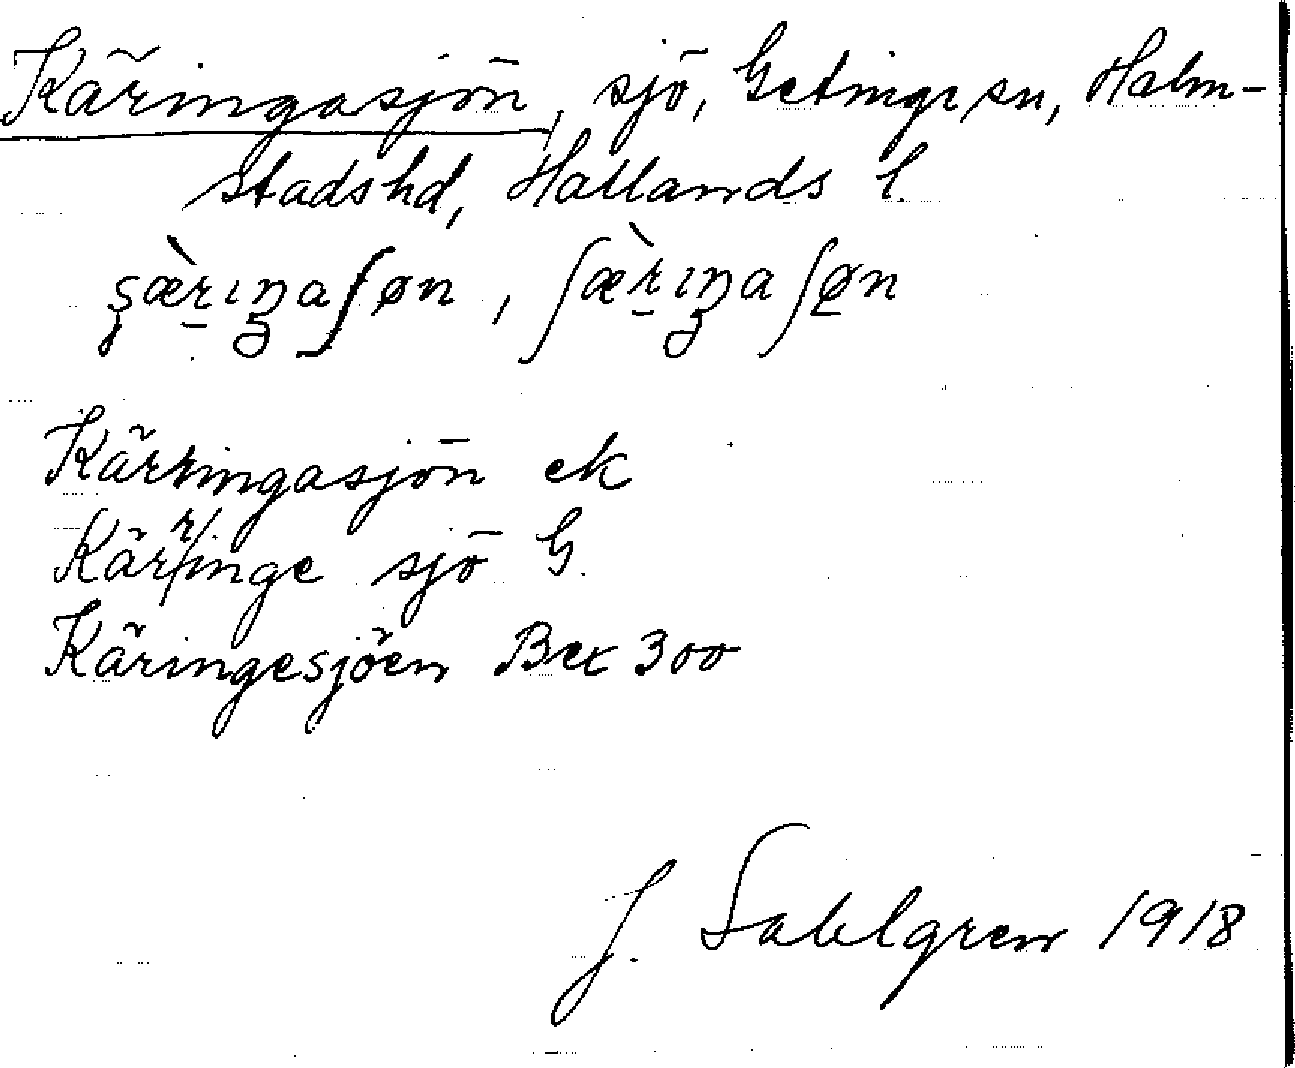 Käringasjön, sjö, Getinge sn, Halm-
stads hd, Hallands l.
ʂæ̀rıŋaʃøn, ʃæ̀rıŋaʃøn
Kärringasjön ek
Kärringe sjö G.
Käringesjöen Bex 300
J. Sahlgren 1918